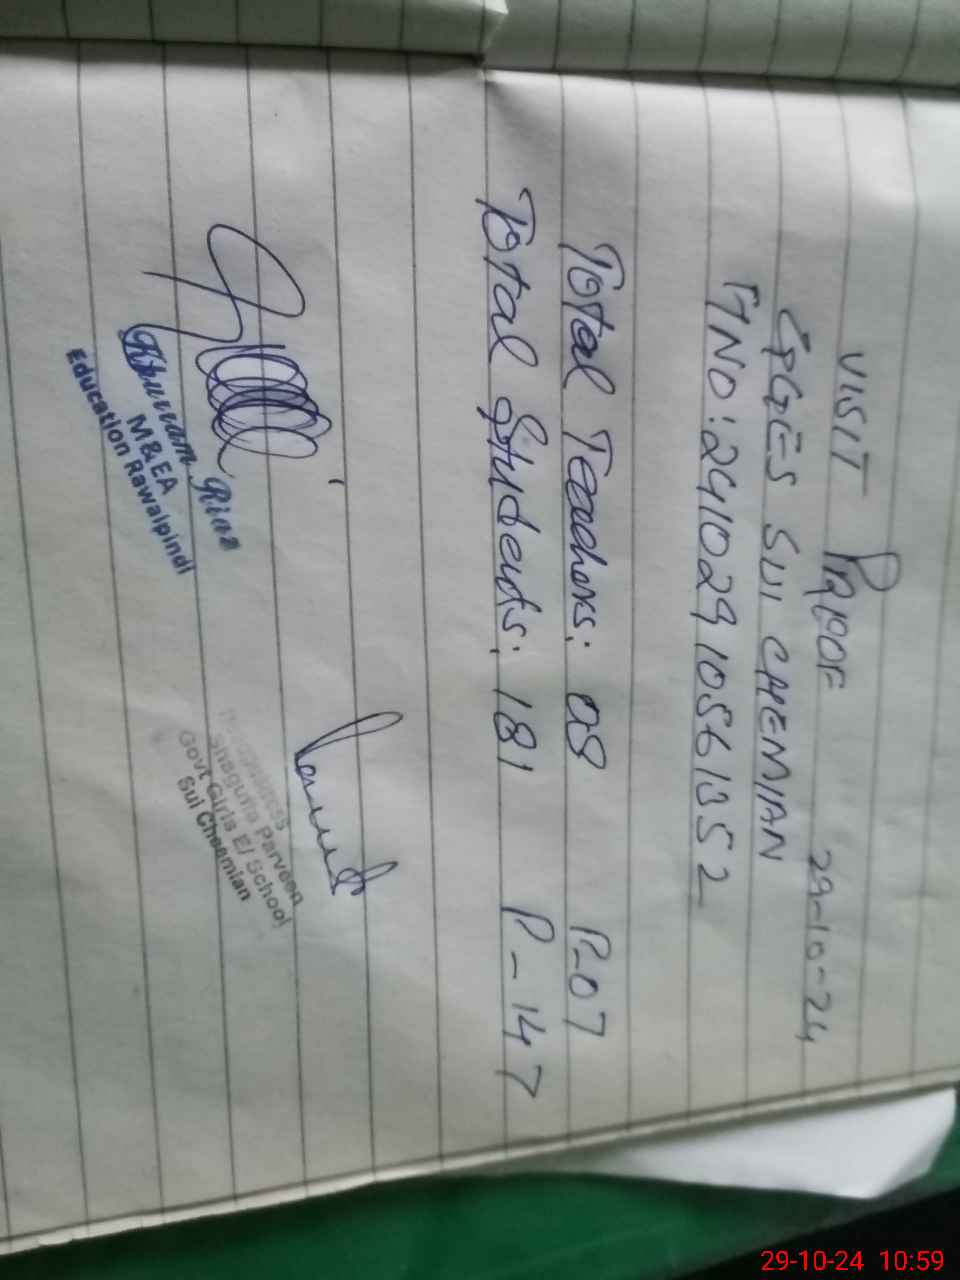 VISIT PROOF 29-10-24
GGES SUI CHEMIAN
MNO: 24102910561352
Total Teachers: 08 P-07
Total Students: 181 P-147
Khurram Riaz
M & EA
Education Rawalpindi
Shagufta Parveen
Govt Girls E/ School
Sui Cheemian
29-10-24 10:59